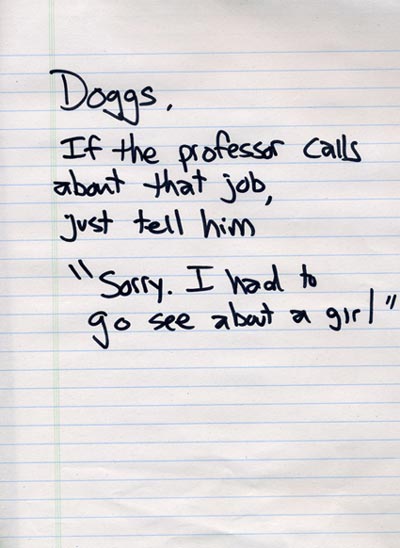 Doggs,
If the professor calls
about that job,
just tell him
"Sorry. I had to
go see about a girl"